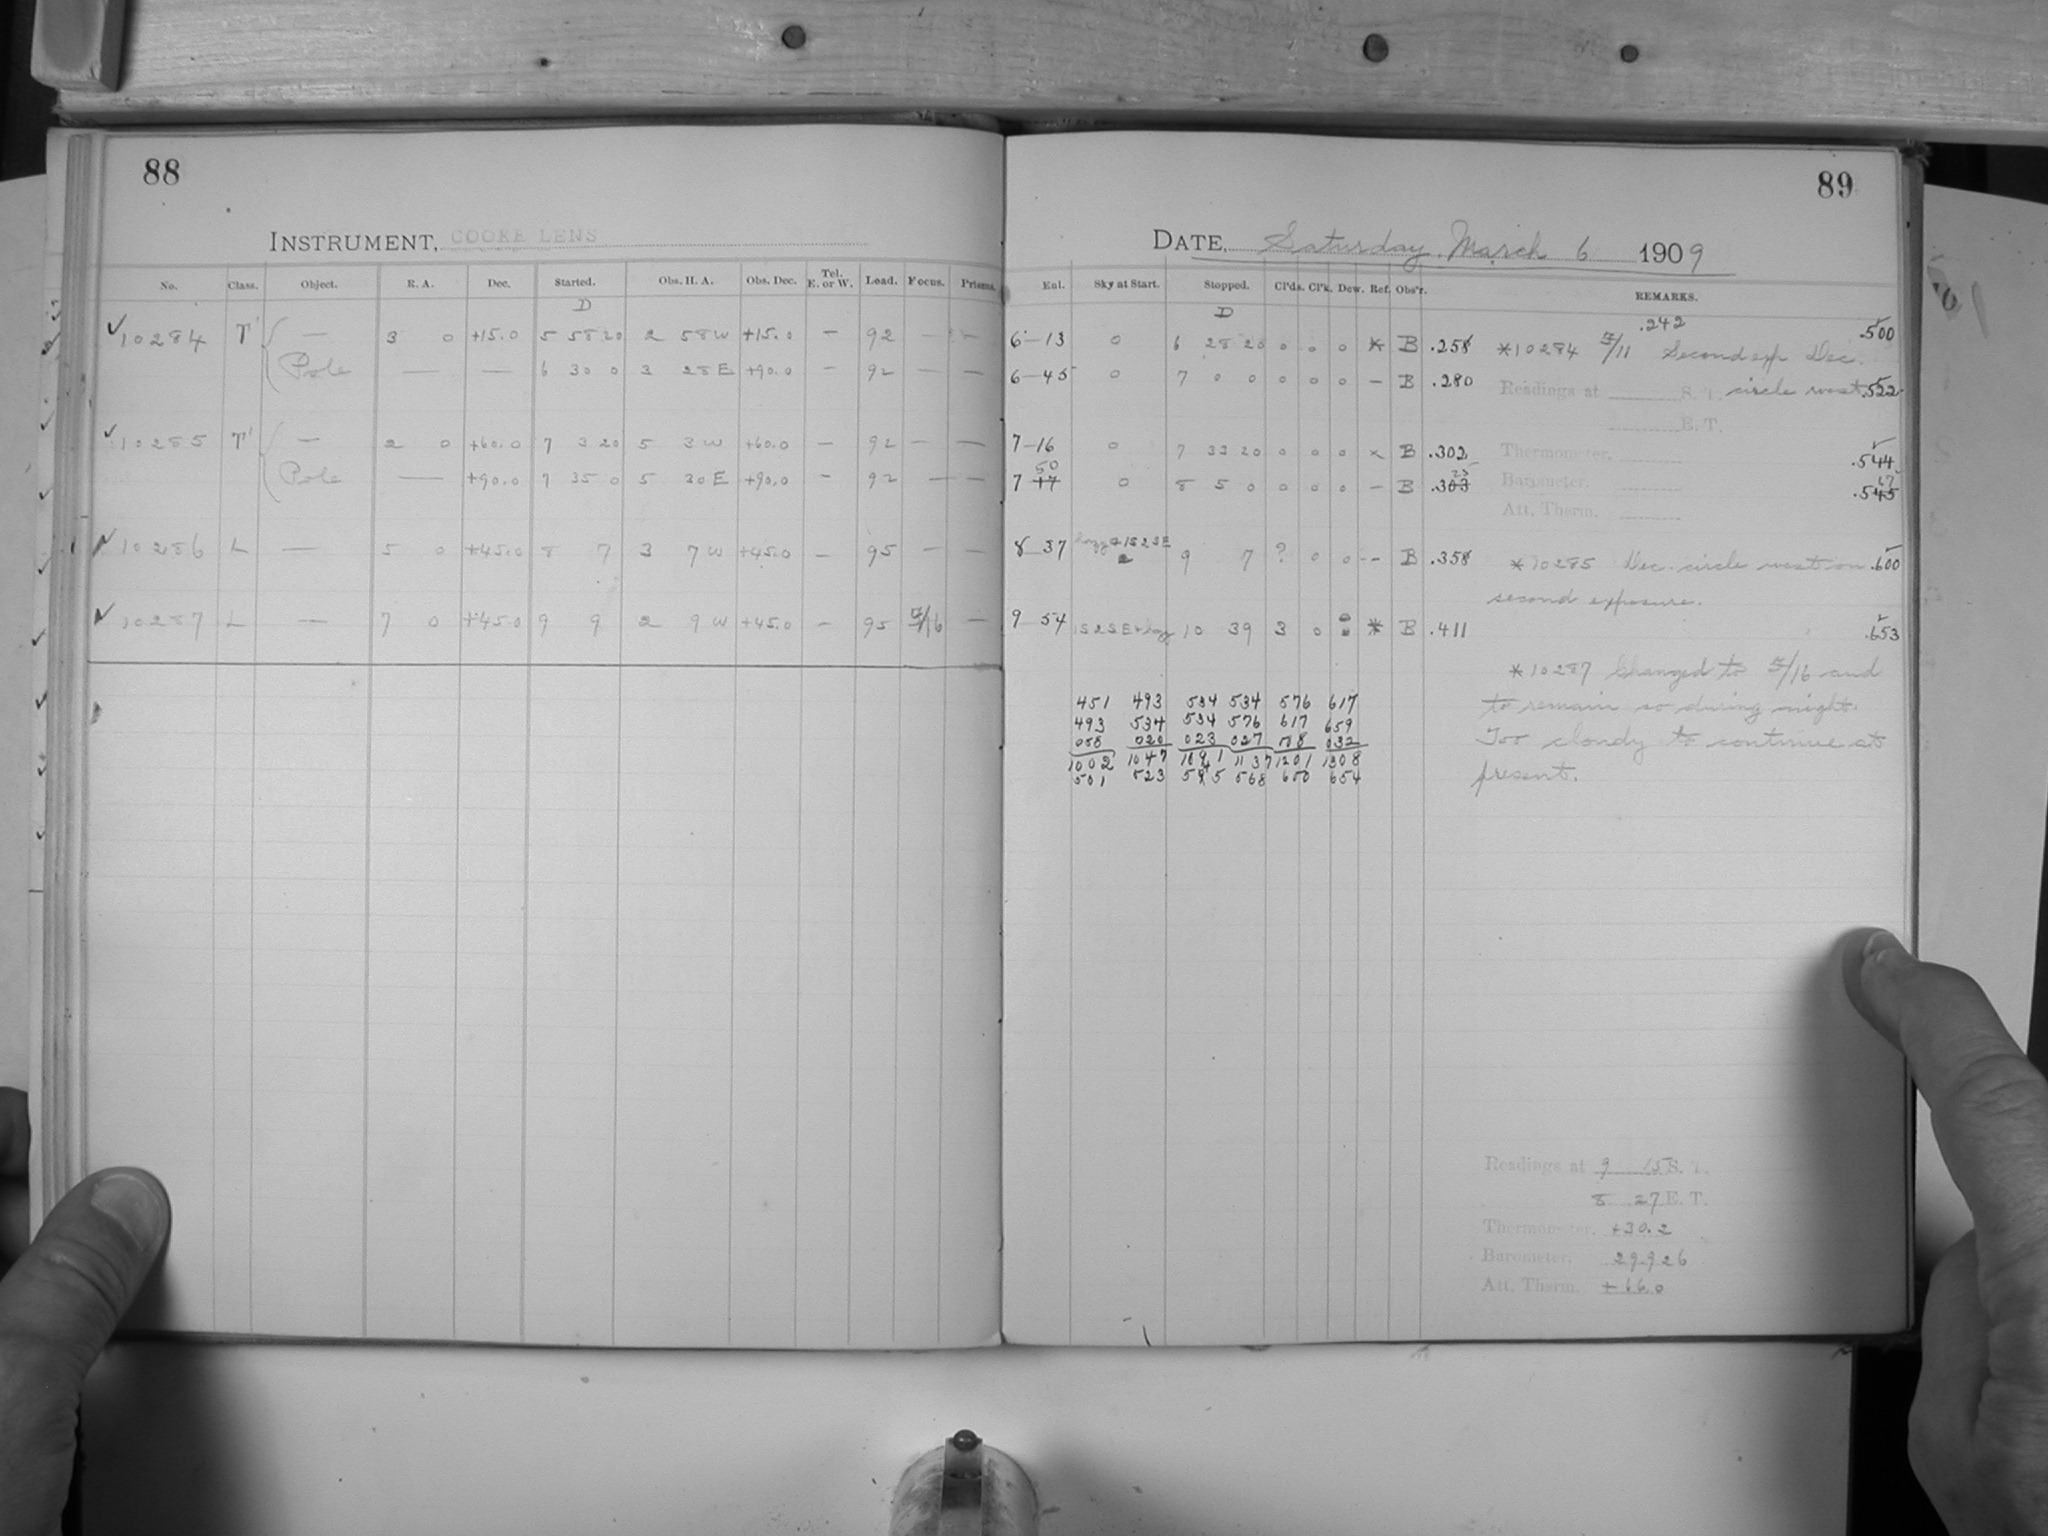 88
INSTRUMENT, COOKE LENS
No. Class. Object. R. A. Dec. Started. Obs. H. A. Obs. Dec. Tel. E. or W. Load. Focus. Prisms.
D
✓10284 T' — 3 0 +15.0 5 58 20 2 58 W +15.0 — 92 — —
Pole — — 6 30 0 3 28 E +90.0 — 92 — —
✓10285 T' — 2 0 +60.0 7 3 20 5 3 W +60.0 — 92 — —
Pole — +90.0 7 35 0 5 30 E +90.0 — 92 — —
✓10286 L — 5 0 +45.0 8 7 3 7 W +45.0 — 95 — —
✓10287 L — 7 0 +45.0 9 9 2 9 W +45.0 — 95 5/16 —
89
DATE, Saturday March 6 1909
Eul. Sky at Start. Stopped. Cl'ds. Cl'k. Dew. Ref. Obs'r. REMARKS.
D
6—13 0 6 28 20 0 0 0 * B .258
6—45 0 7 0 0 0 0 0 — B .280
7—16 0 7 33 20 0 0 0 × B .302
50 25
7 17 0 8 5 0 0 0 0 — B .303
8—37 hazy 2 8 9 7 ? 0 0 -- B .358
9 54 10 39 3 0 * B .411
.242 .500
*10284 5/11 Second exp Dec.
Readings at S. T. circle west .522
E. T.
Thermometer. .544
Barometer. 67
.545
Att. Therm.
*10285 Dec. circle west on .600
second exposure.
.653
*10287 Changed to 5/16 and
to remain so during night.
Too cloudy to continue at
present.
451 493 534 534 576 617
493 534 534 576 617 659
058 020 023 027 032
1002 1047 1091 1137 1201 1308
501 523 545 568 600 654
Readings at 9 15 S. T.
8 27 E. T.
Thermometer. +30.2
Barometer. 29.926
Att. Therm. +66.0